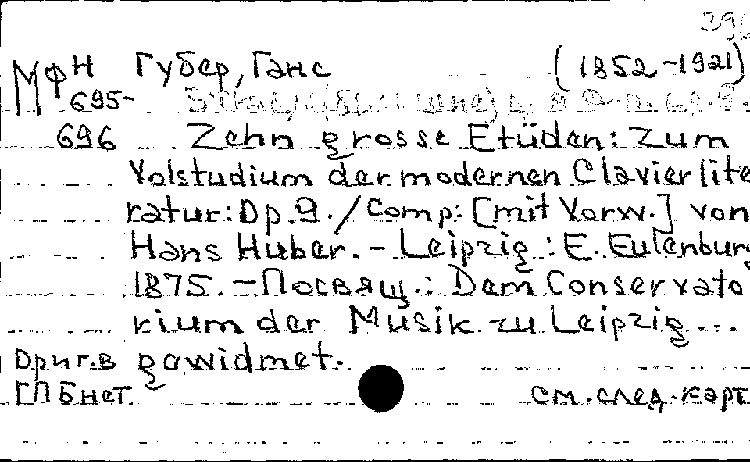 МФН Губер, Ганс (1852-1921)
695-
696 Zehn grosse Etüden: Zum
Volstudium der modernen Clavierlite
ratur: Op. 9. / Comp: [mit Vorw.] von
Hans Huber. - Leipzig: E. Eulenburg
1875. - Посвящ.: Dem Conservato
rium der Musik zu Leipzig...
Ориг. в gewidmet.
ГПБ нет. см. след. карт